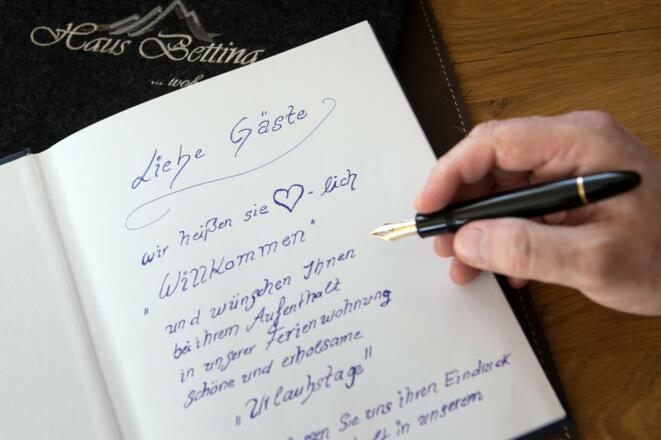 Haus Bettina
... woh
Liebe Gäste
wir heißen sie ♡-lich
"Willkommen"
und wünschen Ihnen
bei ihrem Aufenthalt
in unserer Ferienwohnung
schöne und erholsame
"Urlaubstage"
ssen Sie uns ihren Eindruck
lt in unserem